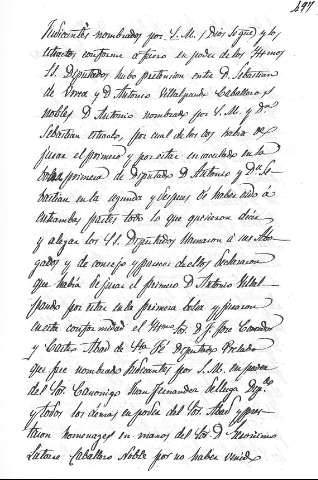 497
Judicantes nombrados por S. M. (Dios le gue) y los
extractos conforme a fuero en poder de los Ill.mos
SS. Diputados hubo pretension entre D. Sebastian
de                y D. Antonio Villalpando Caballeros
nobles D. Antonio nombrado por S. M. y D.n
Sebastian extracto, por cual de los dos habia de
jurar el primero y por estar insaculado en la
bolsa primera de Diputado D. Antonio y D.n Se-
bastian en la segunda y despues de haber oido á
entrambas partes todo lo que quisieron decir
y alegar los SS. Diputados llamaron a sus Abo-
gados y de consejo y parecer de ellos declararon
que habia de jurar el primero D. Antonio Villal-
pando por estar en la primera bolsa y juraron
en esta conformidad el Ill.mo Sor. D. F. José
y Castro Abad de S.ta Fé Diputado Prelado
que fue nombrado Judicante por S. M. en poder
del Sor. Canonigo Juan Fernandez          Dip.do
y todos los demas en poder del Sor. Abad y pres-
taron homenages en manos del Sor. D. Geronimo
        Caballero Noble por no haber venido